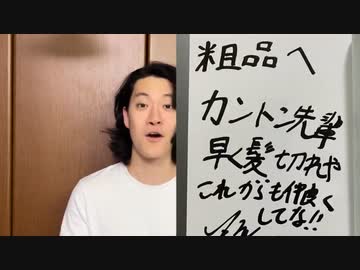 粗品へ
カントン先輩
早く髪切れや
これからも仲良く
してな!!